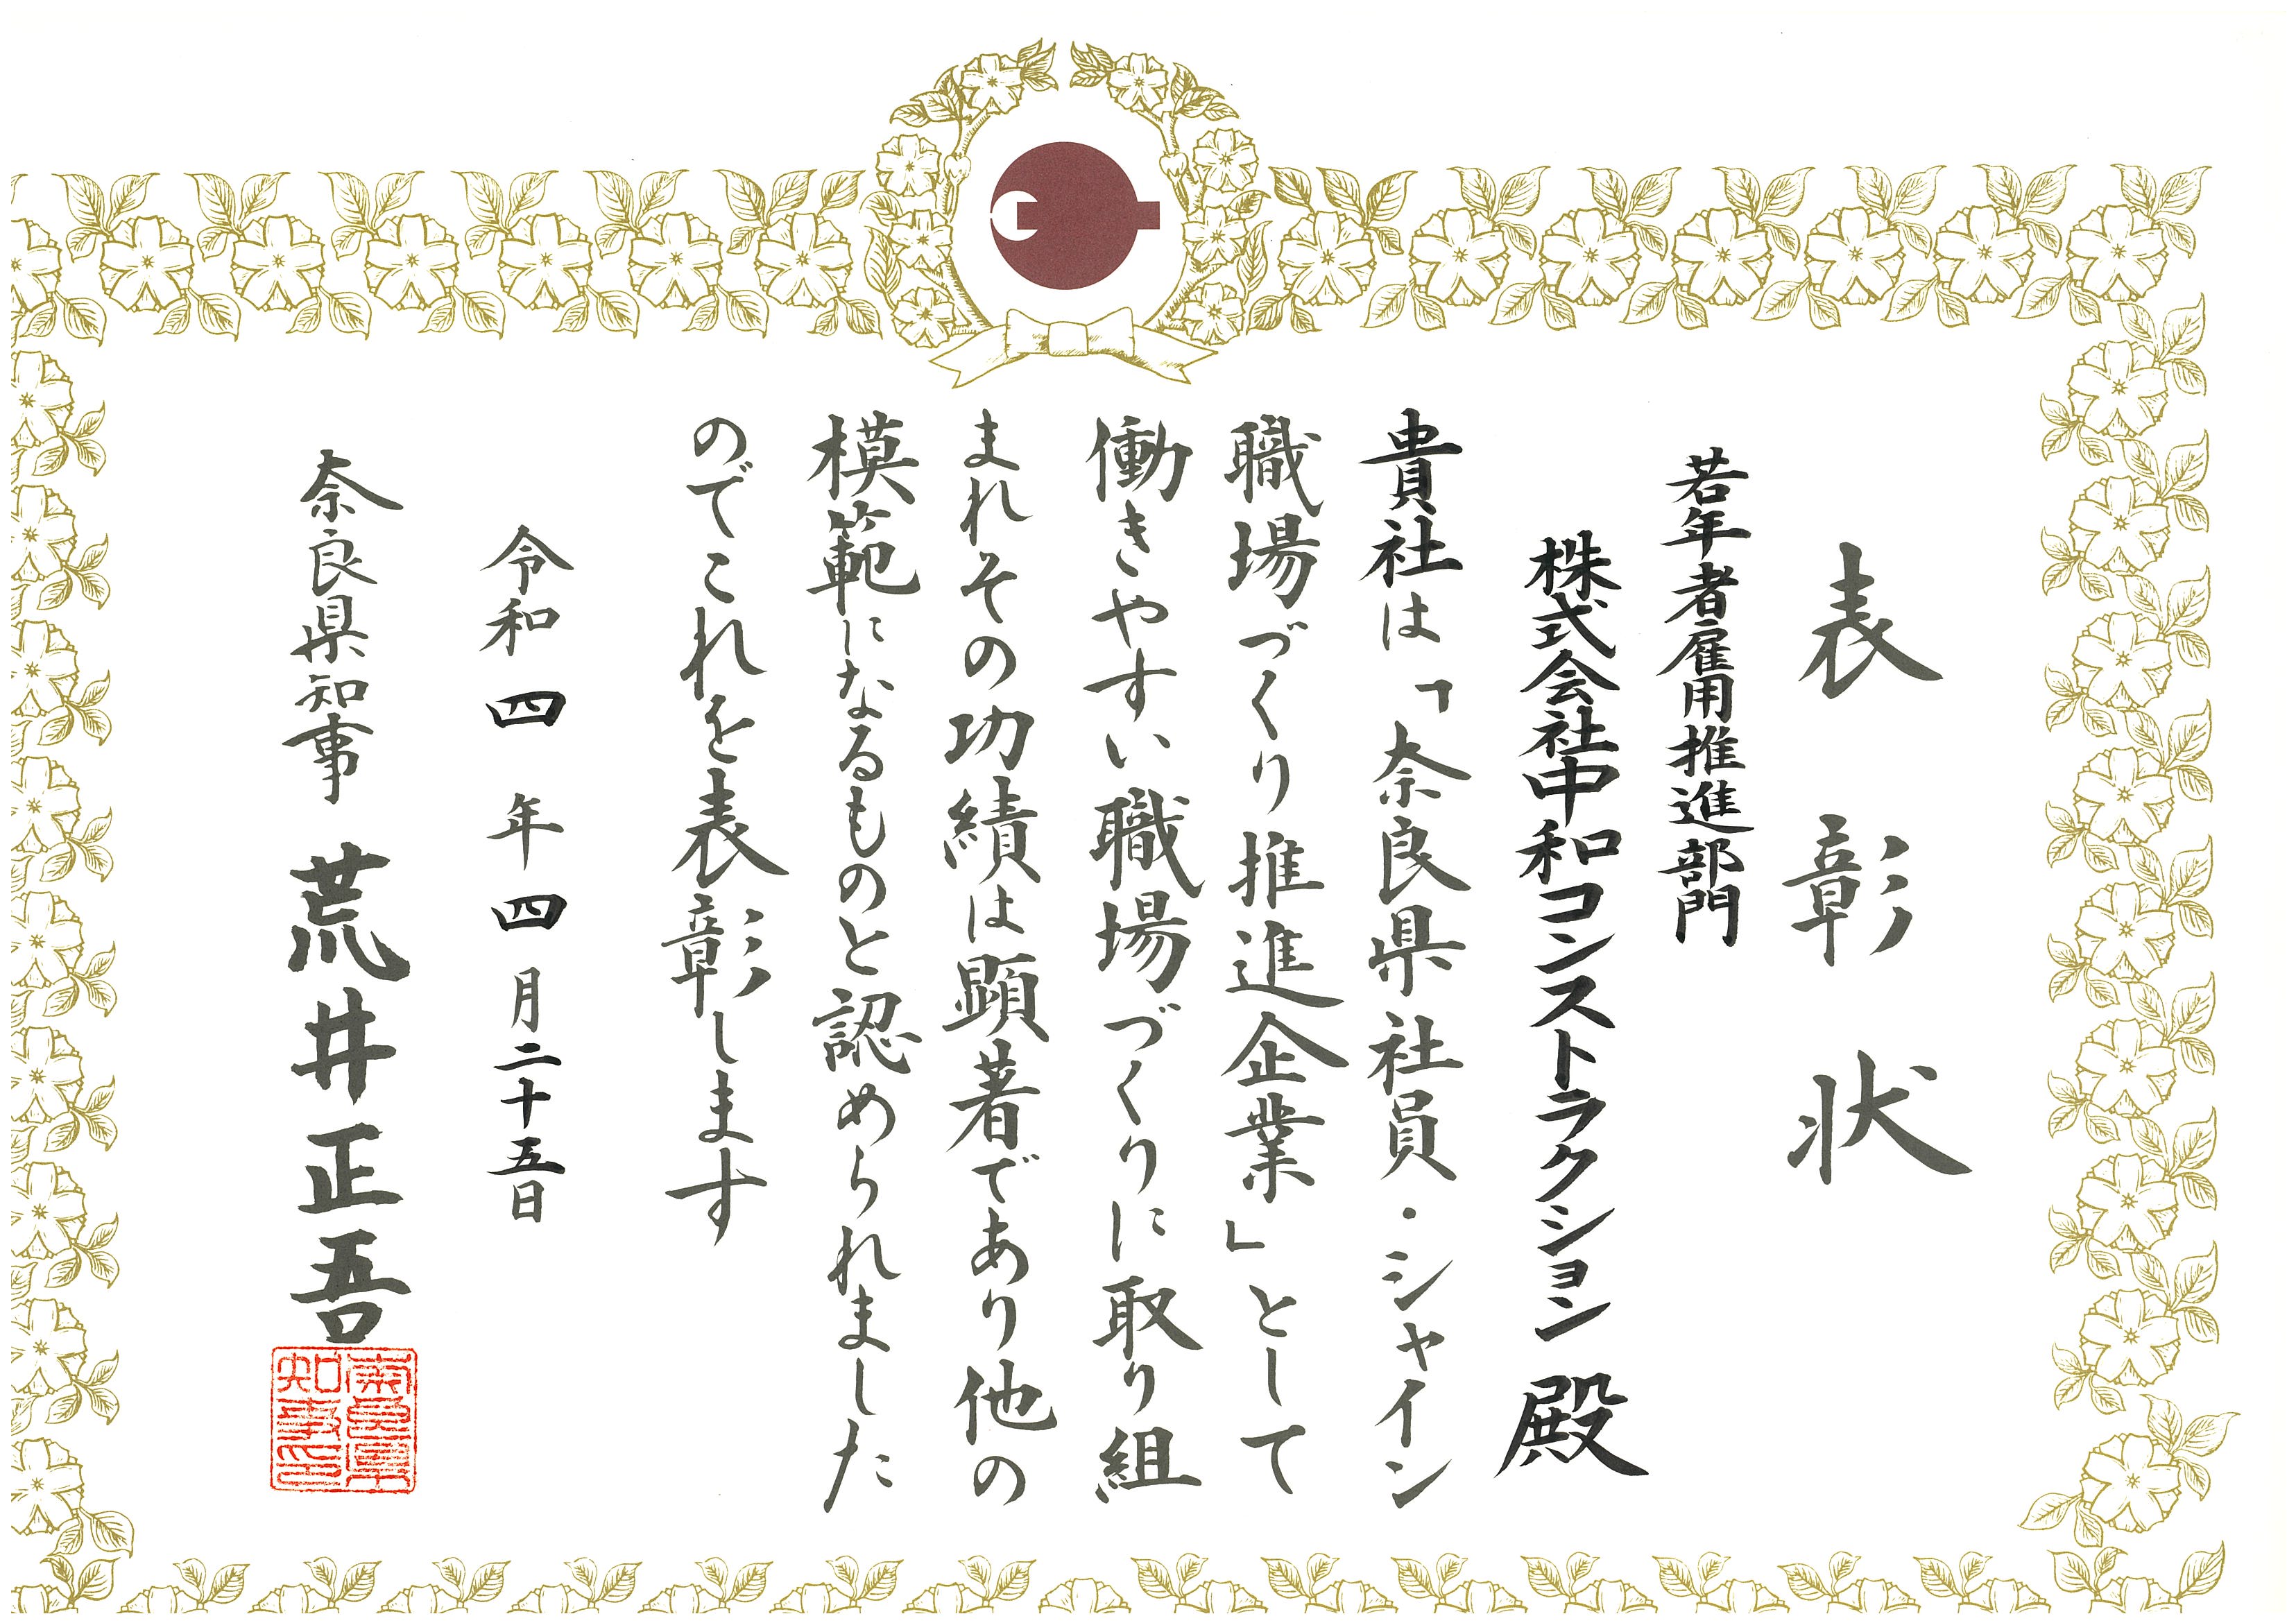 表彰状
若年者雇用推進部門
株式会社中和コンストラクション 殿
貴社は「奈良県社員・シャイン
職場づくり推進企業」として
働きやすい職場づくりに取り組
まれその功績は顕著であり他の
模範になるものと認められました
のでこれを表彰します
令和四年四月二十五日
奈良県知事 荒井正吾
奈良県
知事印